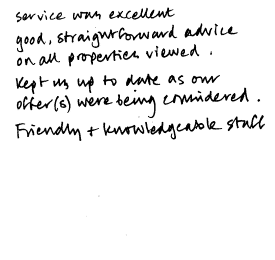 service was excellent
good, straightforward advice
on all properties viewed.
Kept us up to date as our
offer(s) were being considered.
Friendly + knowledgeable staff